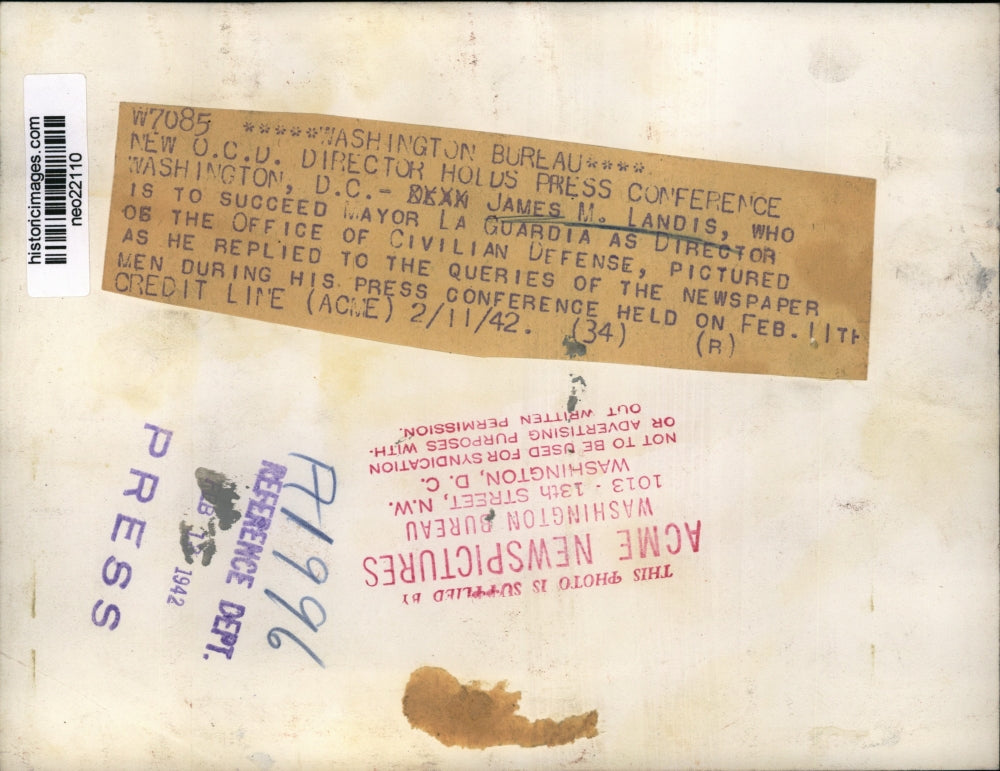 historicimages.com
neo22110
W7085 *****WASHINGTON BUREAU****
NEW O.C.D. DIRECTOR HOLDS PRESS CONFERENCE
WASHINGTON, D.C.- JAMES M. LANDIS, WHO
IS TO SUCCEED MAYOR LA GUARDIA AS DIRECTOR
OF THE OFFICE OF CIVILIAN DEFENSE, PICTURED
AS HE REPLIED TO THE QUERIES OF THE NEWSPAPER
MEN DURING HIS PRESS CONFERENCE HELD ON FEB. 11TH
CREDIT LINE (ACME) 2/11/42. (34) (R)
THIS PHOTO IS SUPPLIED BY
ACME NEWSPICTURES
WASHINGTON BUREAU
1013 - 13th STREET, N.W.
WASHINGTON, D. C.
NOT TO BE USED FOR SYNDICATION
OR ADVERTISING PURPOSES WITH-
OUT WRITTEN PERMISSION.
A1996
REFERENCE DEPT.
1942
PRESS